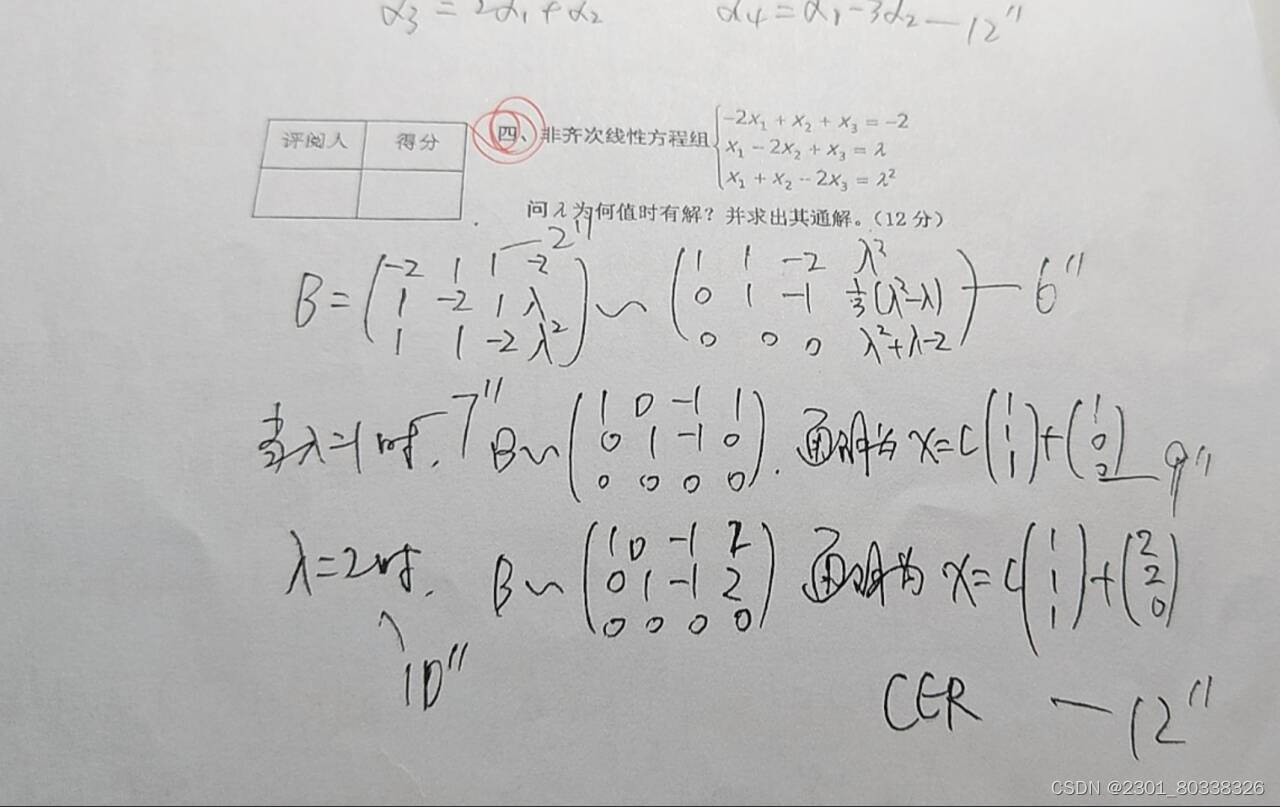 α3 = 2α1+α2 α4 = α1-3α2 — 12"
评阅人 得分
四、非齐次线性方程组 {-2x₁ + x₂ + x₃ = -2
x₁ - 2x₂ + x₃ = λ
x₁ + x₂ - 2x₃ = λ²
问λ为何值时有解？并求出其通解。（12分）
— 2"
B = (-2 1 1 -2 ~ (1 1 -2 λ²
1 -2 1 λ 0 1 -1 1/3(λ²-λ) — 6"
1 1 -2 λ²) 0 0 0 λ²+λ-2)
当λ=1时. — 7" B ~ (1 0 -1 1
0 1 -1 0
0 0 0 0). 通解为 x = c(1 1 1) + (1 0 0) — 9"
λ=2时. B ~ (1 0 -1 2
0 1 -1 2
0 0 0 0) 通解为 x = c(1 1 1) + (2 2 0)
10"
C∈R — 12"
CSDN @2301_80338326